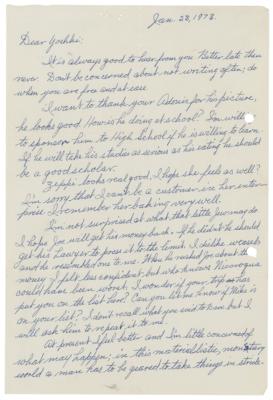 Jan. 28, 1978.
Dear Yoshki:
It is always good to hear from you. Better late then
never. Don't be concerned about not writing often; do
when you are free and at ease
I want to thank your Adonis for his picture,
he looks good. How is he doing at school? I'm willing
to sponsor him to High School if he is willing to learn.
If he will take his studies as serious as his eating he should
be a good scholar.
Zeppe looks real good, I hope she feels as well?
I'm sorry that I can't be a customer in her enter-
prise. I remember her baking very well.
I'm not surprised at what that little did
I hope Joe will get his money back. If he didn't he should
get his Lawyer to press it to the limit. I dislike weasels
and he resembles one to me. When he asked Joe about the
money I felt less confident, but who knows Nicaragua
could have been worst. I wonder if your trip has
put you on the list too? Can you let me know if Mike is
on your list? I don't recall what you said to him but I
will ask him to repeat it to me.
At present I feel better and I'm little concerned of
what may happen; in this materialistic, monetary
world a man has to be geared to take things in stride.